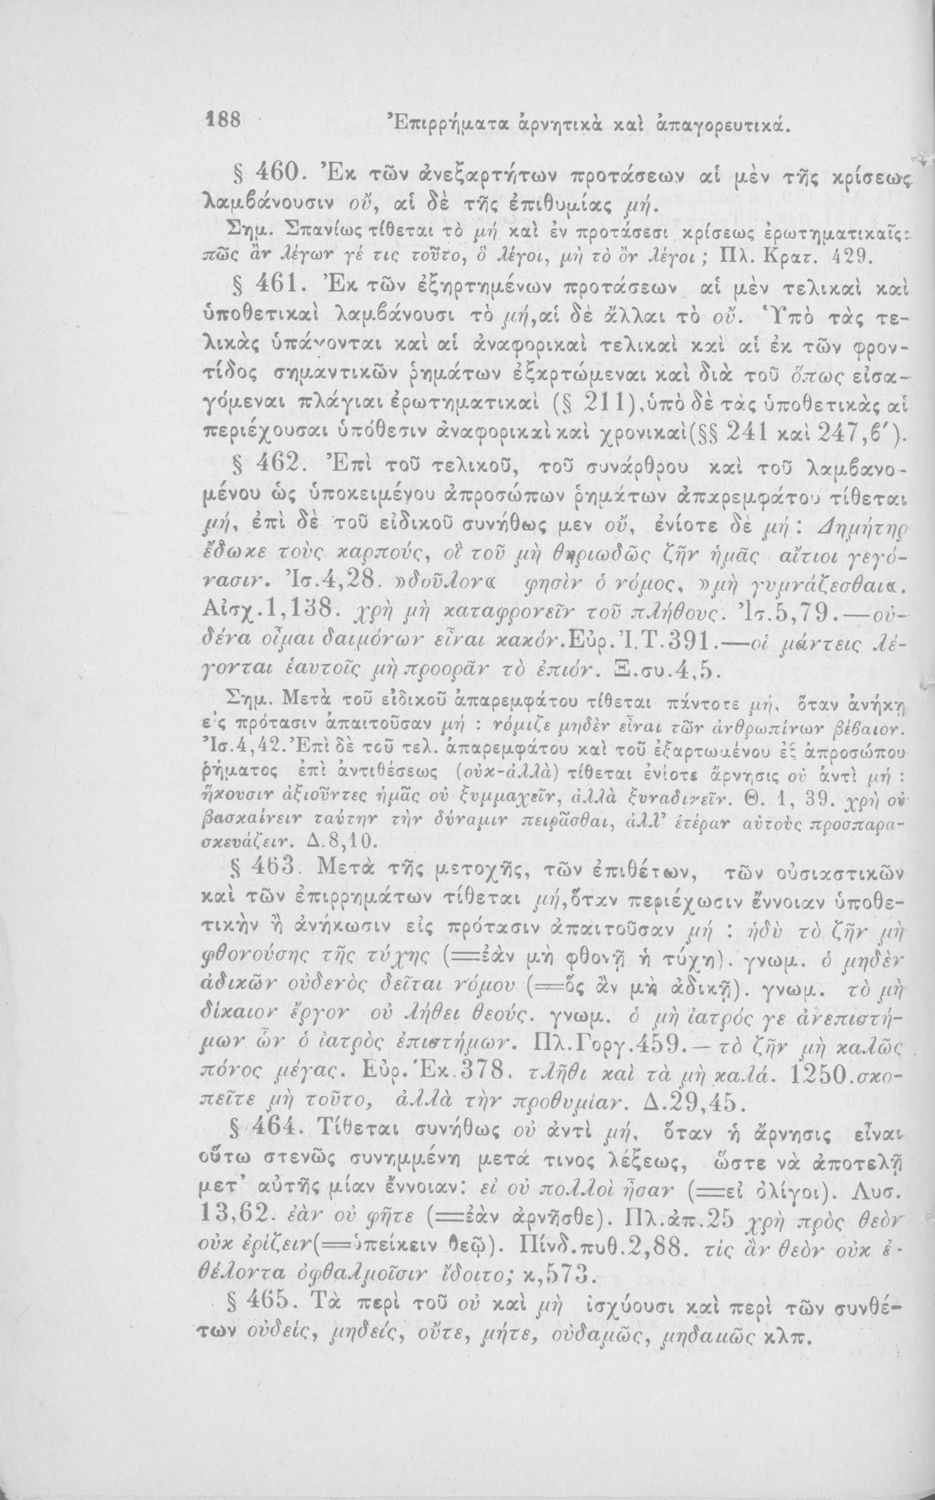 188 Ἐπιρρήματα ἀρνητικὰ καὶ ἀπαγορευτικά.
§ 460. Ἐκ τῶν ἀνεξαρτήτων προτάσεων αἱ μὲν τῆς κρίσεως
λαμβάνουσιν οὔ, αἱ δὲ τῆς ἐπιθυμίας μή.
Σημ. Σπανίως τίθεται τὸ μή καὶ ἐν προτάσεσι κρίσεως ἐρωτηματικαῖς:
πῶς ἂν λέγων γέ τις τοῦτο, ὃ λέγοι, μὴ τὸ ὂν λέγοι; Πλ. Κρατ. 429.
§ 461. Ἐκ τῶν ἐξηρτημένων προτάσεων αἱ μὲν τελικαὶ καὶ
ὑποθετικαὶ λαμβάνουσι τὸ μή, αἱ δὲ ἄλλαι τὸ οὔ. Ὑπὸ τὰς τε-
λικὰς ὑπάγονται καὶ αἱ ἀναφορικαὶ τελικαὶ καὶ αἱ ἐκ τῶν φρον-
τίδος σημαντικῶν ῥημάτων ἐξαρτώμεναι καὶ διὰ τοῦ ὅπως εἰσα-
γόμεναι πλάγιαι ἐρωτηματικαὶ (§ 211), ὑπὸ δὲ τὰς ὑποθετικὰς αἱ
περιέχουσαι ὑπόθεσιν ἀναφορικαὶ καὶ χρονικαὶ (§§ 241 καὶ 247,β΄).
§ 462. Ἐπὶ τοῦ τελικοῦ, τοῦ συνάρθρου καὶ τοῦ λαμβανο-
μένου ὡς ὑποκειμένου ἀπροσώπων ῥημάτων ἀπαρεμφάτου τίθεται
μή, ἐπὶ δὲ τοῦ εἰδικοῦ συνήθως μεν οὔ, ἐνίοτε δὲ μή : Δημήτηρ
ἔδωκε τοὺς καρπούς, οἳ τοῦ μὴ θηριωδῶς ζῆν ἡμᾶς αἴτιοι γεγό-
νασιν. Ἰσ.4,28. »δοῦλον« φησὶν ὁ νόμος, »μὴ γυμνάζεσθαι«.
Αἰσχ.1,138. χρὴ μὴ καταφρονεῖν τοῦ πλήθους. Ἰσ.5,79.—οὐ-
δένα οἶμαι δαιμόνων εἶναι κακόν. Εὐρ. Ἰ.Τ.391.—οἱ μάντεις λέ-
γονται ἑαυτοῖς μὴ προορᾶν τὸ ἐπιόν. Ξ.συ.4,5.
Σημ. Μετὰ τοῦ εἰδικοῦ ἀπαρεμφάτου τίθεται πάντοτε μή, ὅταν ἀνήκῃ
εἰς πρότασιν ἀπαιτοῦσαν μή : νόμιζε μηδὲν εἶναι τῶν ἀνθρωπίνων βέβαιον.
Ἰσ.4,42. Ἐπὶ δὲ τοῦ τελ. ἀπαρεμφάτου καὶ τοῦ ἐξαρτωμένου ἐξ ἀπροσώπου
ῥήματος ἐπὶ ἀντιθέσεως (οὐκ-ἀλλὰ) τίθεται ἐνίοτε ἄρνησις οὐ ἀντὶ μή :
ἥκουσιν ἀξιοῦντες ἡμᾶς οὐ ξυμμαχεῖν, ἀλλὰ ξυναδικεῖν. Θ. 1, 39. χρὴ οὐ
βασκαίνειν ταύτην τὴν δύναμιν πειρᾶσθαι, ἀλλ' ἑτέραν αὐτοὺς προσπαρα-
σκευάζειν. Δ.8,10.
§ 463. Μετὰ τῆς μετοχῆς, τῶν ἐπιθέτων, τῶν οὐσιαστικῶν
καὶ τῶν ἐπιρρημάτων τίθεται μή, ὅταν περιέχωσιν ἔννοιαν ὑποθε-
τικὴν ἢ ἀνήκωσιν εἰς πρότασιν ἀπαιτοῦσαν μή : ἡδὺ τὸ ζῆν μὴ
φθονούσης τῆς τύχης (=ἐὰν μὴ φθονῇ ἡ τύχη). γνωμ. ὁ μηδὲν
ἀδικῶν οὐδενὸς δεῖται νόμου (=ὃς ἂν μὴ ἀδικῇ). γνωμ. τὸ μὴ
δίκαιον ἔργον οὐ λήθει θεούς. γνωμ. ὁ μὴ ἰατρός γε ἀνεπιστή-
μων ὧν ὁ ἰατρὸς ἐπιστήμων. Πλ.Γοργ.459.—τὸ ζῆν μὴ καλῶς
πόνος μέγας. Εὐρ. Ἑκ.378. τλῆθι καὶ τὰ μὴ καλά. 1250. σκο-
πεῖτε μὴ τοῦτο, ἀλλὰ τὴν προθυμίαν. Δ.29,45.
§ 464. Τίθεται συνήθως οὐ ἀντὶ μή, ὅταν ἡ ἄρνησις εἶναι
οὕτω στενῶς συνημμένη μετά τινος λέξεως, ὥστε νὰ ἀποτελῇ
μετ' αὐτῆς μίαν ἔννοιαν: εἰ οὐ πολλοὶ ἦσαν (=εἰ ὀλίγοι). Λυσ.
13,62. ἐὰν οὐ φῆτε (=ἐὰν ἀρνῆσθε). Πλ.ἀπ.25 χρὴ πρὸς θεὸν
οὐκ ἐρίζειν (=ὑπείκειν θεῷ). Πίνδ.πυθ.2,88. τίς ἂν θεὸν οὐκ ἐ-
θέλοντα ὀφθαλμοῖσιν ἴδοιτο; κ,573.
§ 465. Τὰ περὶ τοῦ οὐ καὶ μὴ ἰσχύουσι καὶ περὶ τῶν συνθέ-
των οὐδείς, μηδείς, οὔτε, μήτε, οὐδαμῶς, μηδαμῶς κλπ.